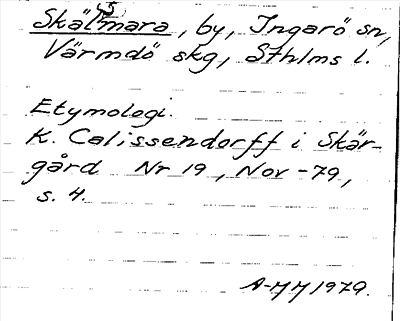 Skälsmara, by, Ingarö sn,
Värmdö skg, Sthlms l.
Etymologi.
K. Calissendorff i Skär-
gård Nr 19, Nov -79,
s. 4.
A-MM 1979.